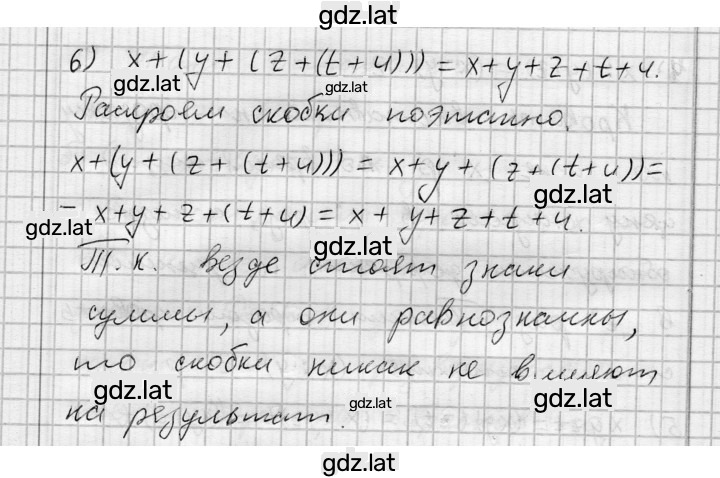 gdz.lat
6) x+(y+(z+(t+u))) = x+y+z+t+u.
gdz.lat gdz.lat gdz.lat
Раскроем скобки поэтапно.
x+(y+(z+(t+u))) = x+y+(z+(t+u))=
gdz.lat
= x+y+z+(t+u) = x+y+z+t+u.
gdz.lat gdz.lat
Т.к. везде стоят знаки
суммы, а они равнозначны,
то скобки никак не влияют
gdz.lat gdz.lat gdz.lat
на результат.
gdz.lat